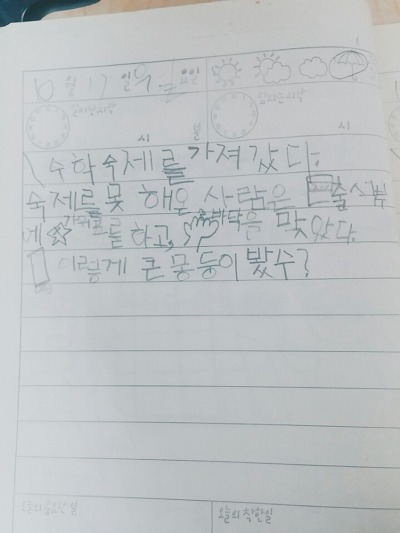 6월 17일 월요일
일어난시각 잠자는시각
시 분 시
수학 숙제를 가져 갔다.
숙제를 못 해온 사람은 출석부
에 가위표를 하고, 손바닥을 맞았다.
이렇게 큰 몽둥이 봤수?
오늘의중요한일 오늘의착한일